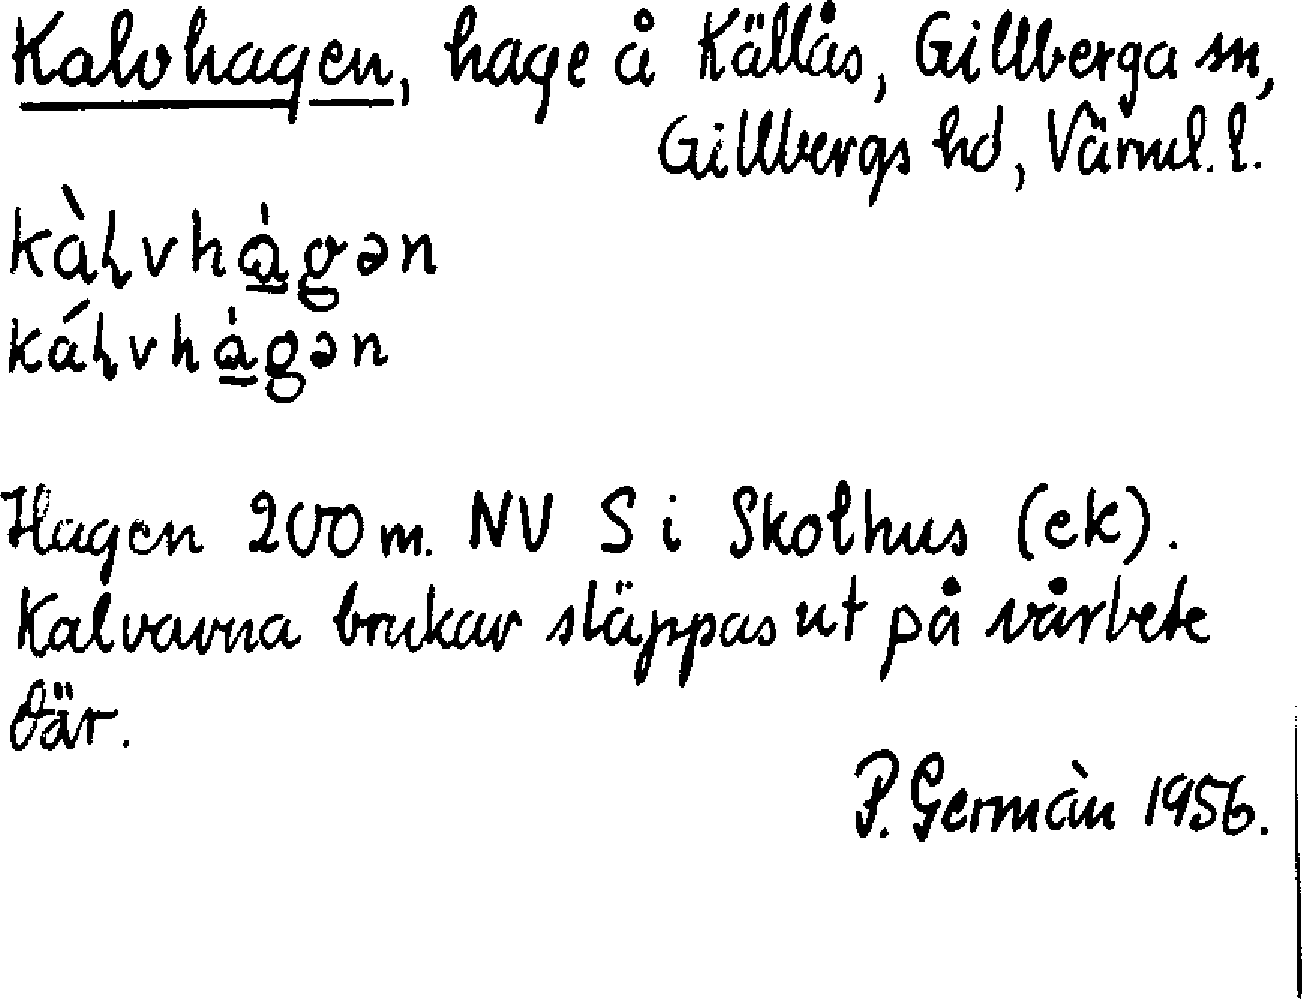 Kalvhagen, hage å Källås, Gillberga sn,
Gillbergs hd, Värml. l.
kàɭvhạ̀gən
káɭvhạ̀gən
Hagen 200 m. NV S i Skolhus (ek).
Kalvarna brukar släppas ut på vårbete
där.
P. Germàn 1956.